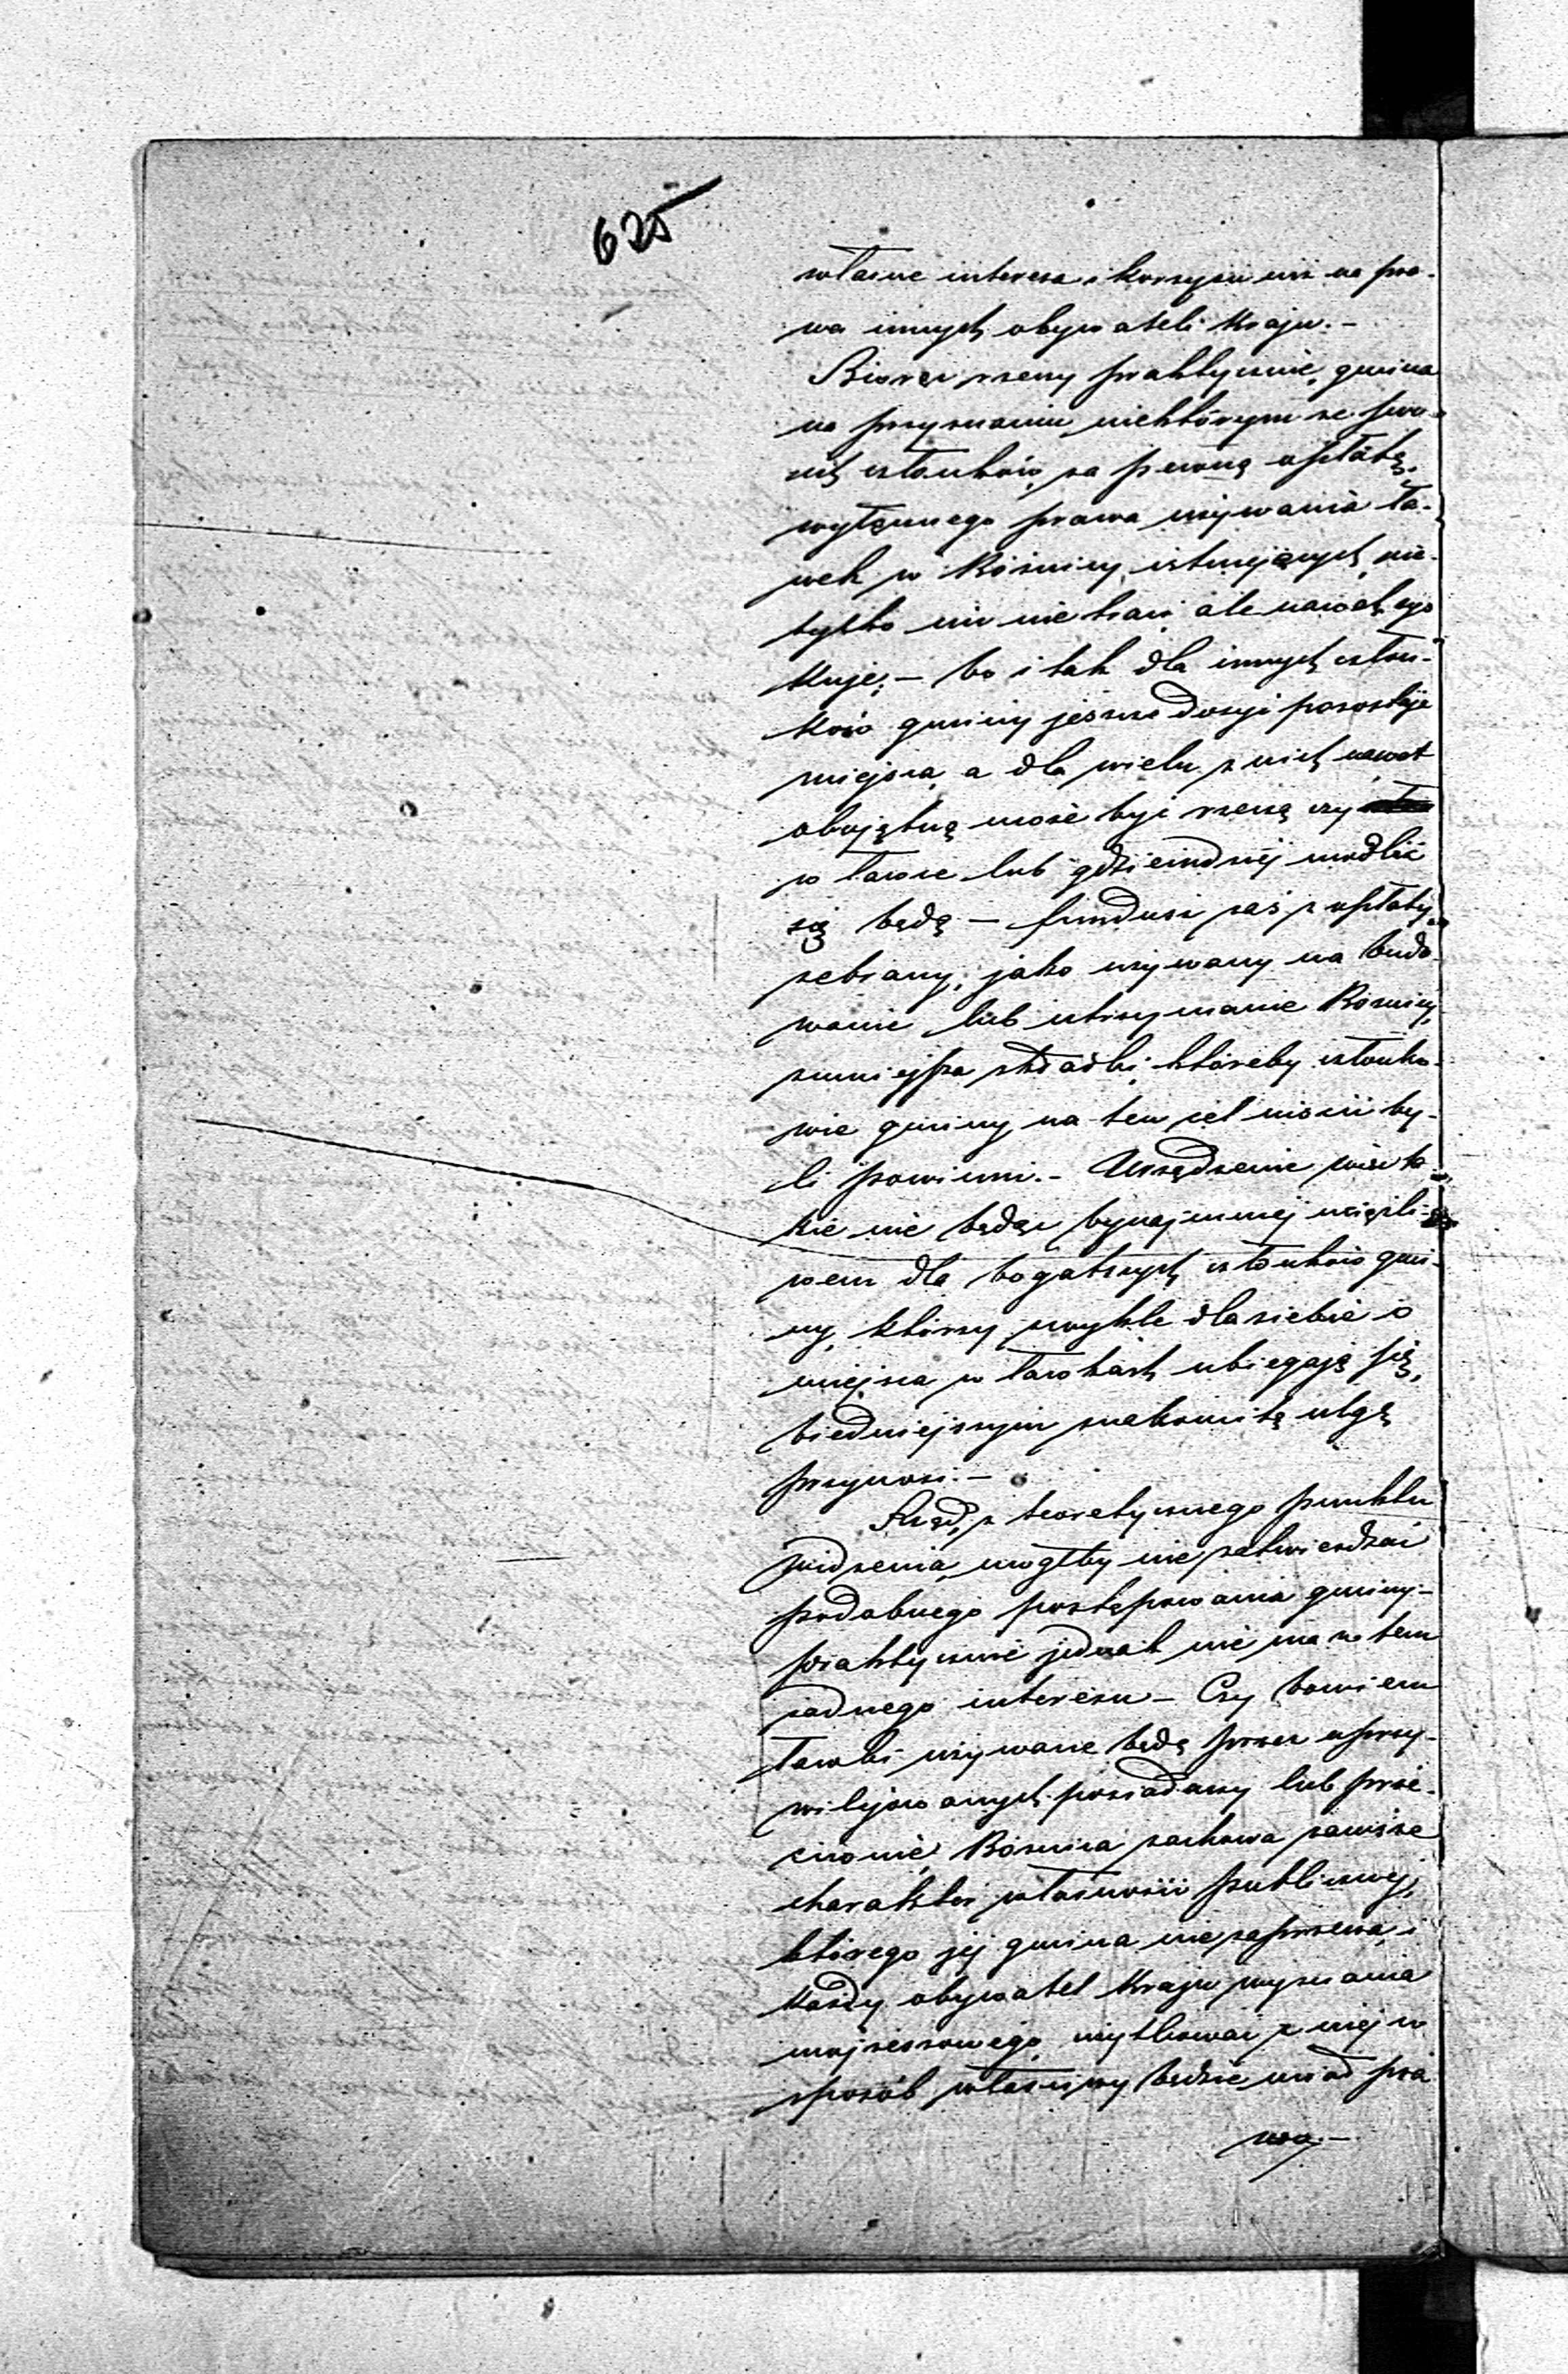 625
własne interesa i korzyści niż na pra-
wa innych obywateli Kraju.-
Biorąc rzeczy praktycznie, gmina
na przyznaniu niektórym ze swo-
ich członków, za pewną opłatą,
wyłącznego prawa używania ła-
wek w Bóżnicy istniejących, nie-
tylko nic nie traci ale nawet zys-
kuje; - bo i tak dla innych człon-
ków gminy jeszcze dosyć pozostaje
miejsca, a dla wielu z nich nawet
obojętną może być rzeczą czy
w ławce lub gdzieindziej modlić
się będą - fundusz zaś z opłaty
zebrany, jako używany na budo-
wanie lub utrzymanie Bóżnicy,
zmniejsza składki, któreby członko-
wie gminy na ten cel nieść by-
li powinni.- Urządzenie więc ta-
kie nie będąc bynajmniej uciążli-
wem dla bogatszych członków gmi-
ny, którzy zwykle dla siebie o
miejsca w ławkach ubiegają się,
biedniejszym znakomitą ulgę
przynosi.-
Rząd, z teoretycznego punktu
widzenia, mógłby nie zatwierdzać
podobnego postępowania gminy-
praktycznie jednak nie ma w tem
żadnego interesu - Czy bowiem
ławki używane będą przez uprzy-
wilejowanych posiadaczy lub prze-
ciwnie, Bóżnica zachowa zawsze
charakter własności publicznej,
którego jej gmina nie zaprzecza, i
każdy obywatel Kraju wyznania
mojżeszowego, użytkować z niej w
sposób właściwy będzie miał pra
wo.-